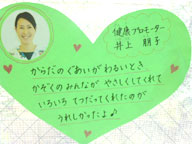 健康プロモーター
井上 朋子
からだのぐあいがわるいとき
かぞくのみんなが やさしくしてくれて
いろいろ てつだってくれたのが
うれしかったよ♪